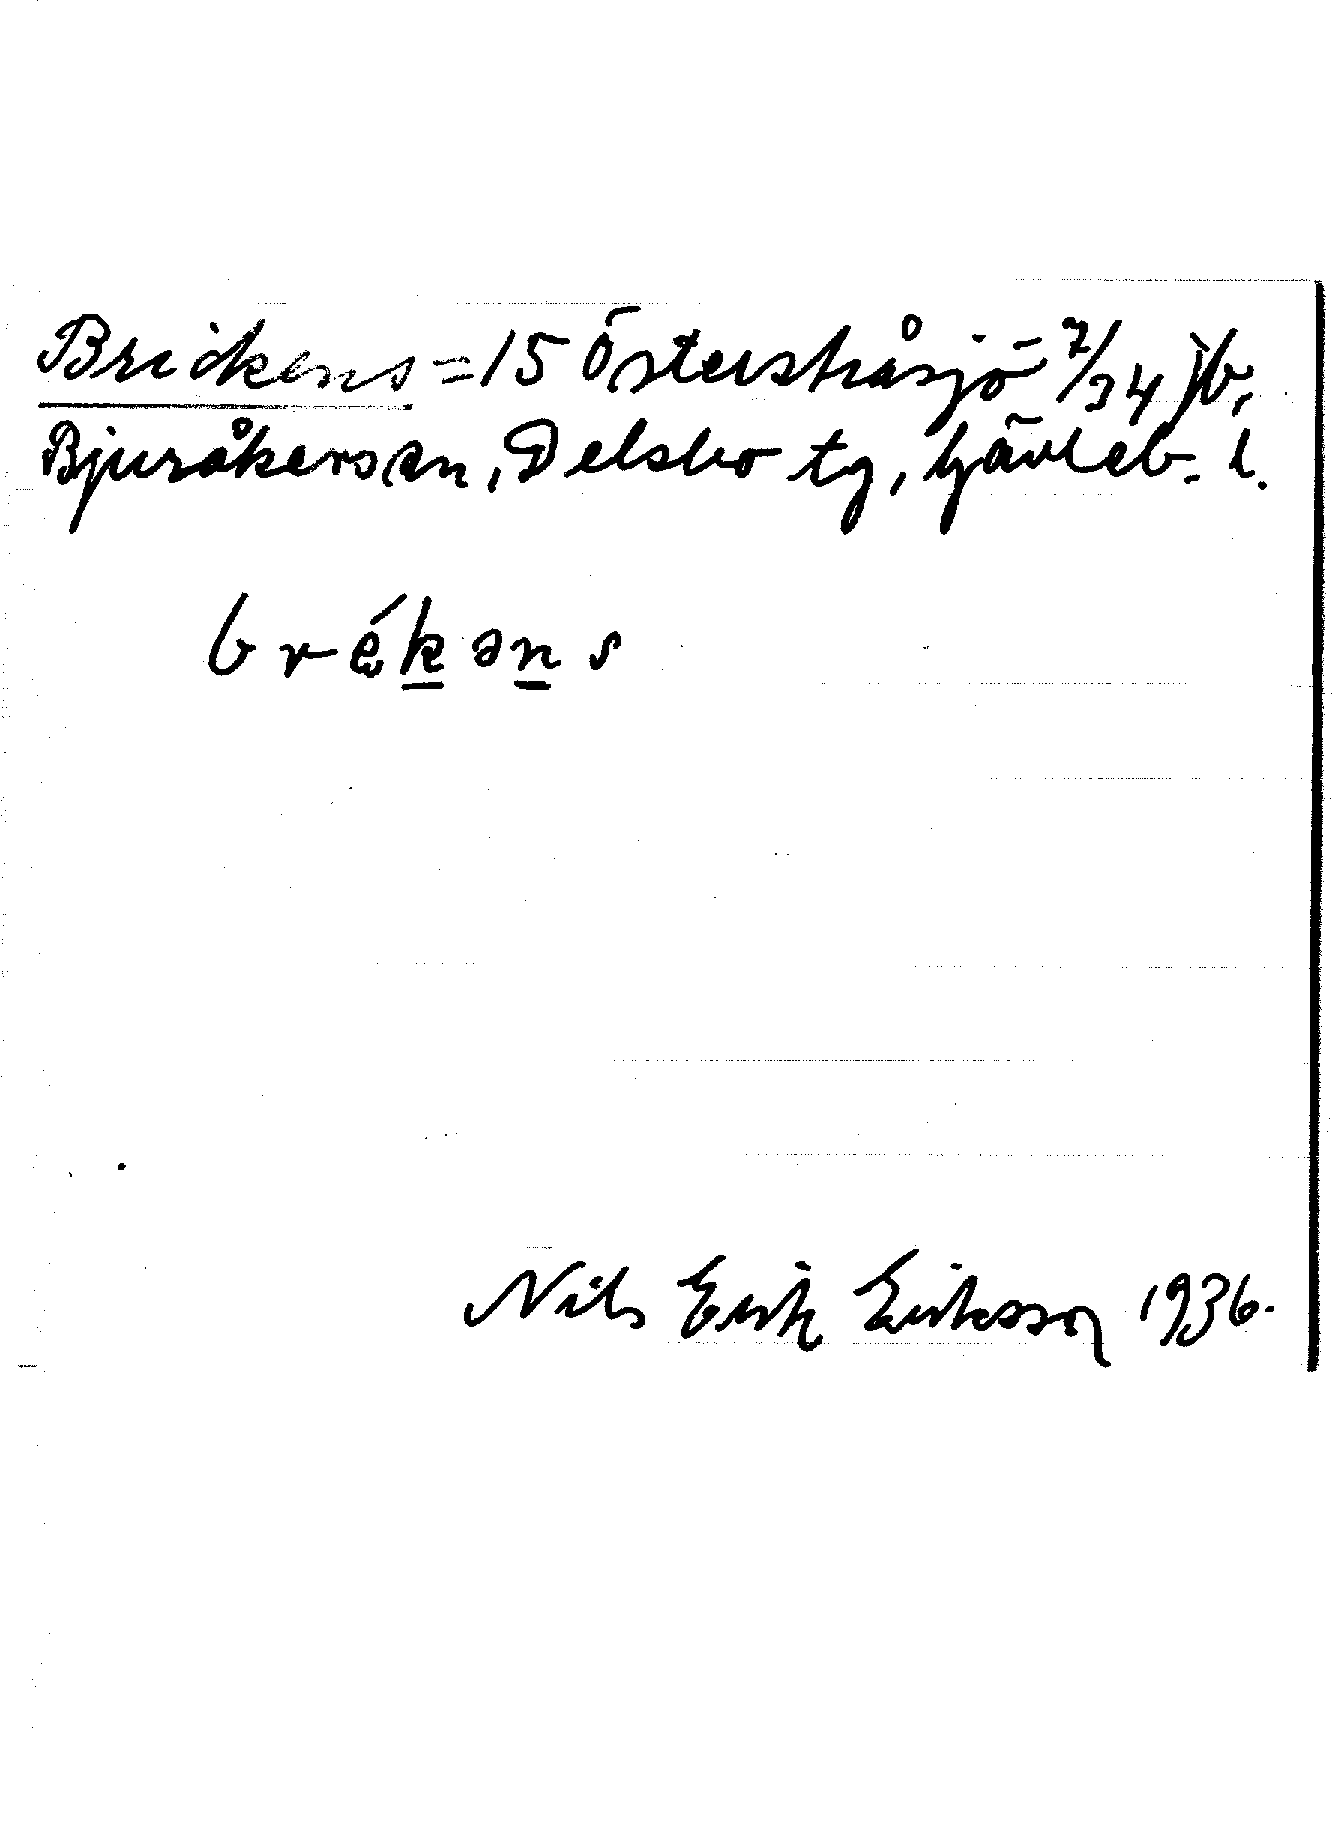 Brickens = 15 Österstråsjö 7/34 jb,
Bjuråkers sn, Delsbo tg, Gävleb. l.
brékəns
Nils Erik Eriksson 1936.